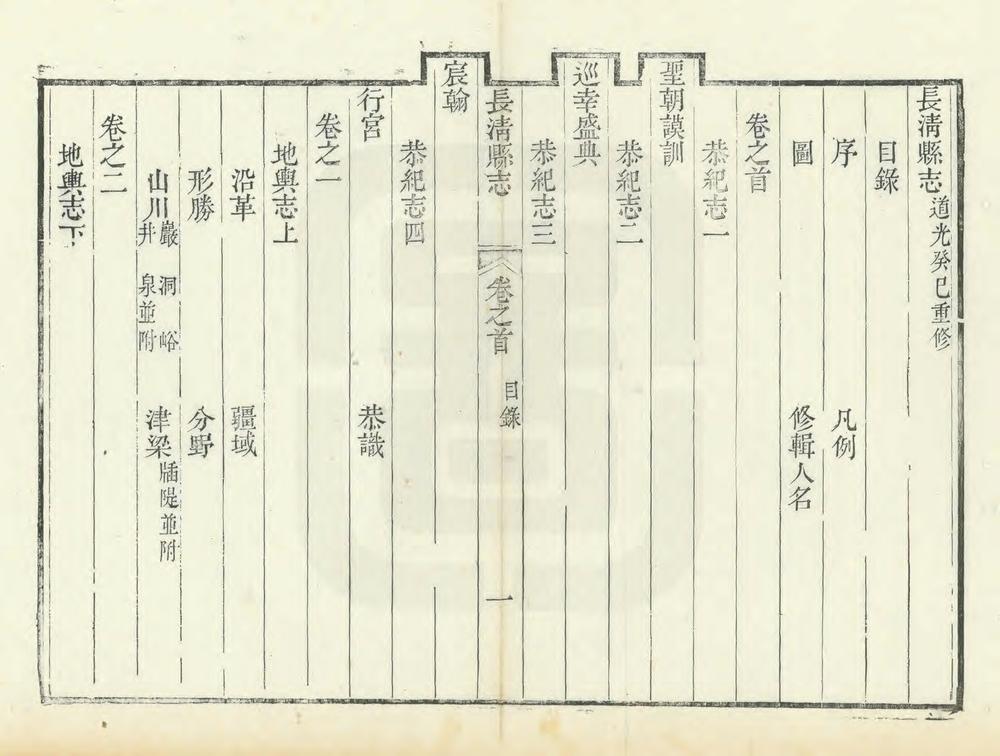 長淸縣志道光癸巳重修
目錄
序 凡例
圖 修輯人名
卷之首
恭紀志一
聖朝謨訓
恭紀志二
巡幸盛典
恭紀志三
長淸縣志 卷之首 目錄 一
宸翰
恭紀志四
行宮 恭識
卷之一
地輿志上
沿革 疆域
形勝 分野
山川巖洞峪井泉並附 津梁牐隄並附
卷之二
地輿志下